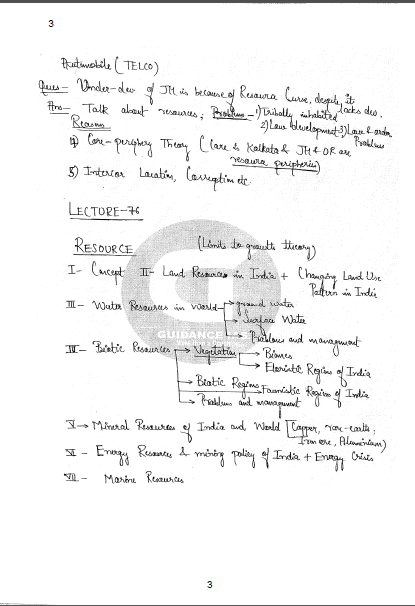 3
Automobile (TELCO)
Ques - Under-dev of JH is because of Resource Curse, despite, it lacks dev.
Ans - Talk about resources; Problems - 1) Tribally inhabited
2) Low development 3) Law & order Problems
Reasons
Core-periphery Theory (Core is Kolkata & JH & OR are resource peripheries)
5) Interior Location, Corruption etc
LECTURE-76
RESOURCE (Limits to growth theory)
I - Concept II - Land Resources in India + Changing Land Use Pattern in India
III - Water Resources in world → ground water
→ Surface Water
→ Problems and management
GUIDANCE
IV - Biotic Resources → Vegetation → Biomes
→ Floristic Regions of India
→ Biotic Regions → Faunistic Regions of India
→ Problems and management
V → Mineral Resources of India and World [Copper, rare-earth, Iron ore, Aluminium)
VI - Energy Resources & mining policy of India + Energy Crisis
VII - Marine Resources
3